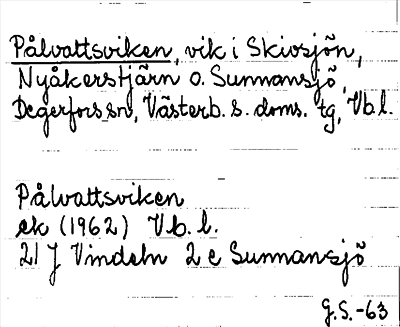 Pålvattsviken, vik i Skivsjön,
Nyåkerstjärn o. Sunnansjö,
Degerfors sn, Västerb. s. doms. tg, Vb l.
Pålvattsviken
ek (1962) Vb. l.
21 J Vindeln 2 c Sunnansjö
G.S.-63